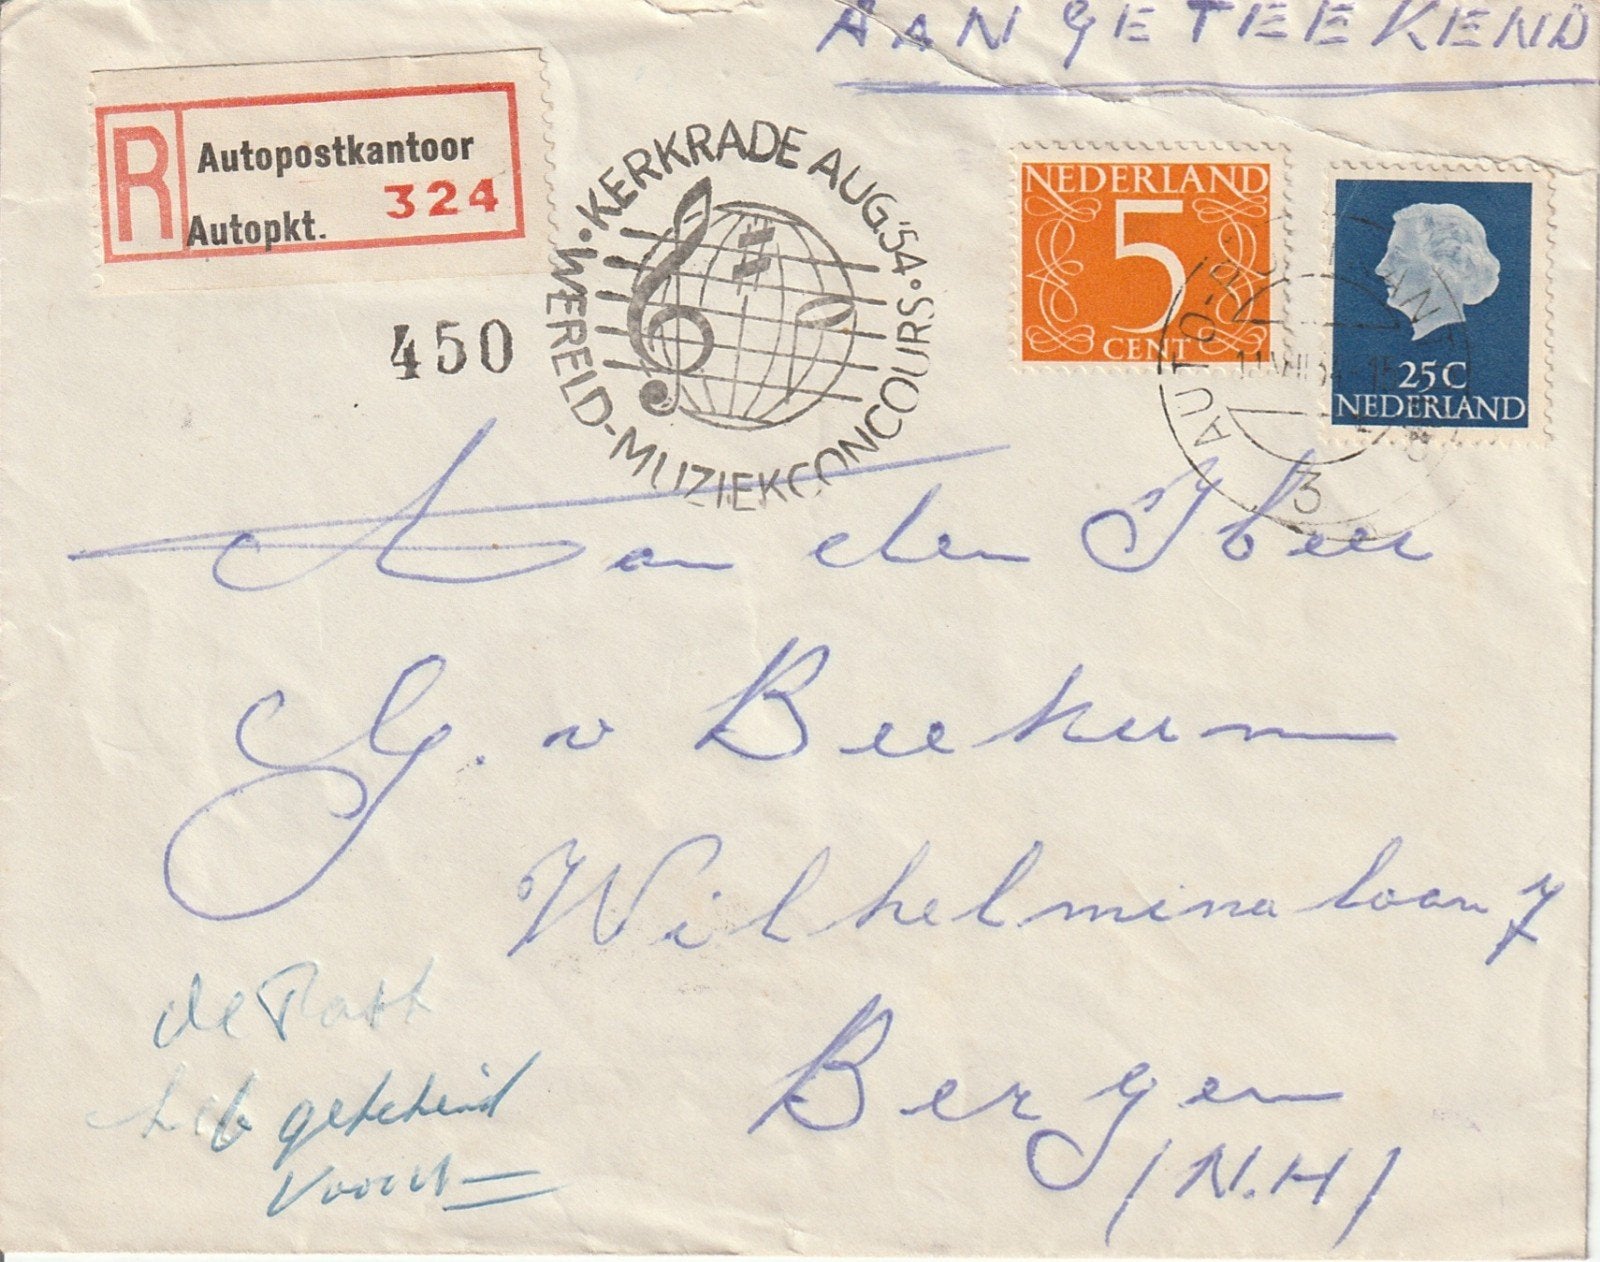 AANGETEEKEND
R Autopostkantoor
324
Autopkt.
450
KERKRADE AUG.'54.
WERELD-MUZIEKCONCOURS.
NEDERLAND
5
CENT
25C
NEDERLAND
3
Aan den Heer
G. v Beekum
Wilhelminalaan 7
Bergen
(N.H)
de Post
getekend
voor